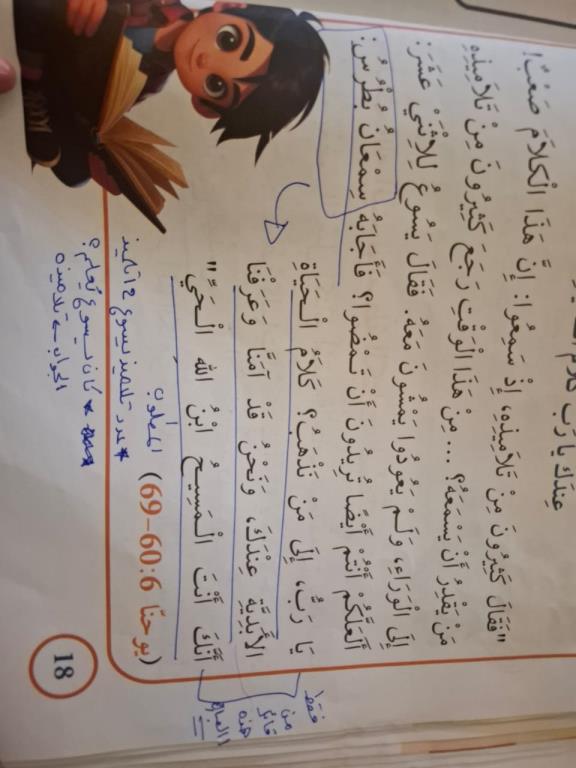 عِنْدَكَ يَا رَبّ كَلَامُ
"فَقَالَ كَثِيرُونَ مِنْ تَلَامِيذِهِ، إِذْ سَمِعُوا: إِنَّ هَذَا الْكَلَامَ صَعْبٌ!
مَنْ يَقْدِرُ أَنْ يَسْمَعَهُ؟ ... مِنْ هَذَا الْوَقْتِ رَجَعَ كَثِيرُونَ مِنْ تَلَامِيذِهِ
إِلَى الْوَرَاءِ، وَلَمْ يَعُودُوا يَمْشُونَ مَعَهُ. فَقَالَ يَسُوعُ لِلِاثْنَيْ عَشَرَ:
أَلَعَلَّكُمْ أَنْتُمْ أَيْضًا تُرِيدُونَ أَنْ تَمْضُوا؟ فَأَجَابَهُ سِمْعَانُ بُطْرُسُ:
يَا رَبُّ، إِلَى مَنْ نَذْهَبُ؟ كَلَامُ الْحَيَاةِ
الأَبَدِيَّةِ عِنْدَكَ، وَنَحْنُ قَدْ آمَنَّا وَعَرَفْنَا
أَنَّكَ أَنْتَ الْمَسِيحُ ابْنُ اللهِ الْحَيِّ"
(يوحنّا 6:60-69)
المطلوب
* عدد تلاميذ يسوع 12 تلميذ
* كان يسوع يُعلم؟
الجواب ← تلاميذه
فقط
من
قائل
هذه
العبارة
18